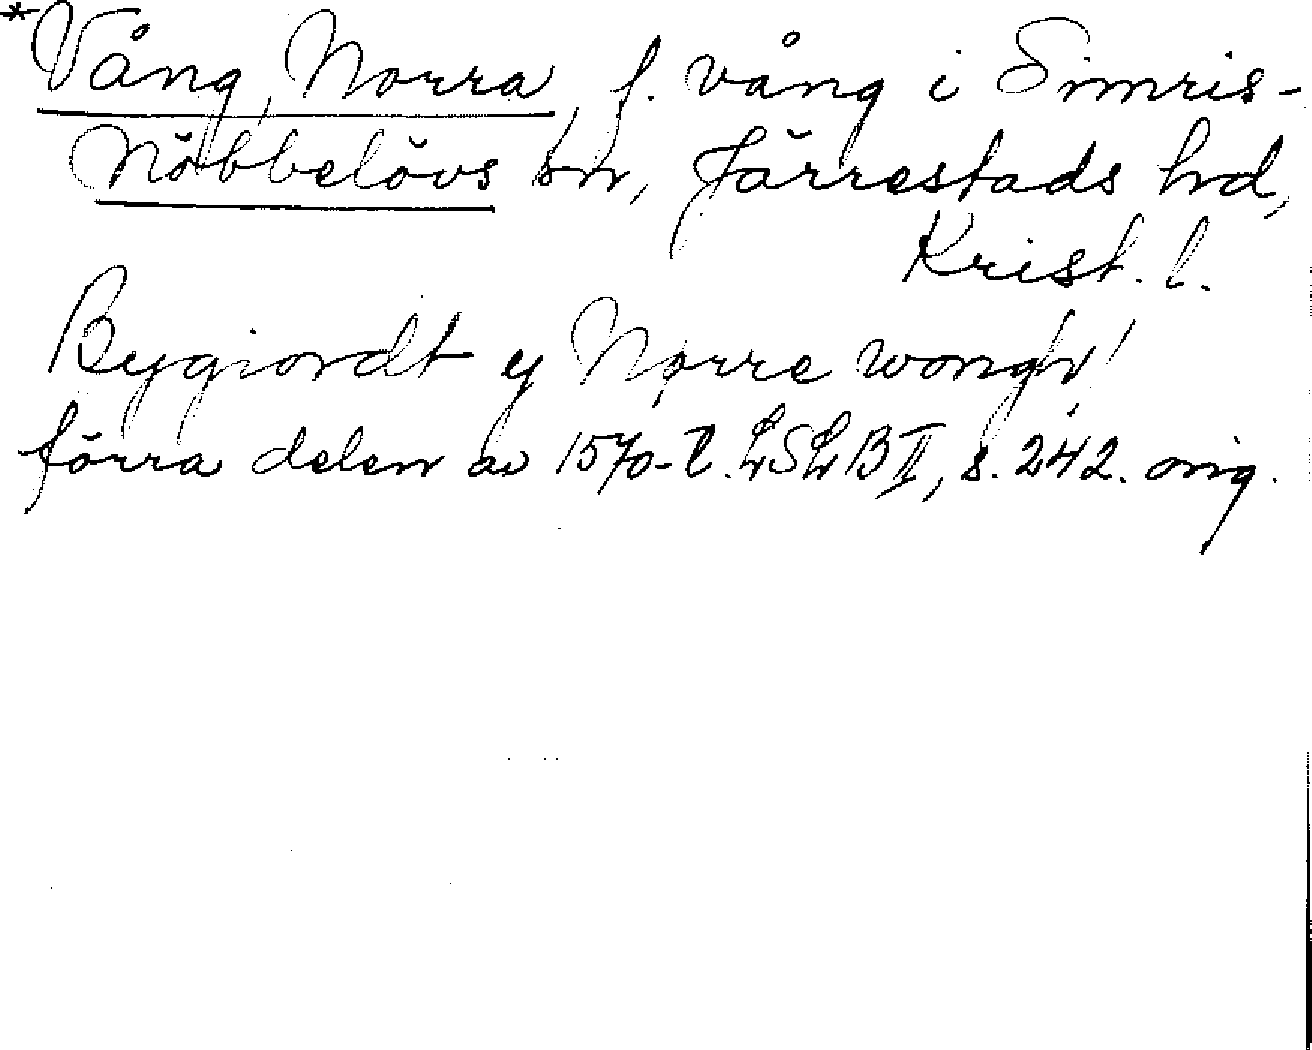 *Vång, Norra, f. vång i Simris-
Nöbbelövs sn, Järrestads hrd,
Krist. l.
Bygiordt y Nørre wongh!
förra delen av 1570-t. LSLB II, s. 242. orig.